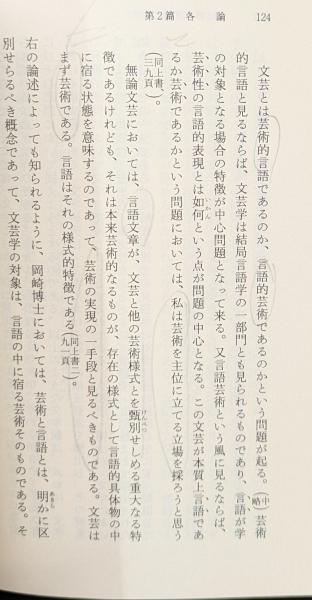 第2篇 各 論 124
文芸とは芸術的言語であるのか、言語的芸術であるのかという問題が起る。(中略)芸術
的言語と見るならば、文芸学は結局言語学の一部門とも見られるものであり、言語が学
の対象となる場合の特徴が中心問題となって来る。又言語芸術という風に見るならば、
芸術性の言語的表現とは如何という点が問題の中心となる。この文芸が本質上言語であ
るか芸術であるかという問題においては、私は芸術を主位に立てる立場を採ろうと思う
(同上書、三九頁)。
無論文芸においては、言語文章が、文芸と他の芸術様式とを甄別せしめる重大なる特
徴であるけれども、それは本来芸術的なるものが、存在の様式として言語的具体物の中
に宿る状態を意味するのであって、芸術の実現の一手段と見るべきものである。文芸は
まず芸術である。言語はそれの様式的特徴である(同上書二九一頁)。
右の論述によっても知られるように、岡崎博士においては、芸術と言語とは、明かに区
別せらるべき概念であって、文芸学の対象は、言語の中に宿る芸術そのものである。そ